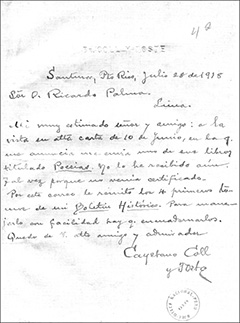 42
Santurce, Pto Rico, Julio 28 de 1915
Sor D. Ricardo Palma.
Lima.
Mi muy estimado señor y amigo: a la
vista en otra carta de 10 de Junio, en la q.
me anuncia me envia uno de sus libros
titulado Poesías. No lo he recibido aún.
Tal vez porque no venia certificado.
Por este correo le remito los 4 primeros tomos
de mi Boletín Histórico. Para mane-
jarlo con facilidad hay q. encuadernarlos.
Quedo de V. atto amigo y admirador
Cayetano Coll
y Toste